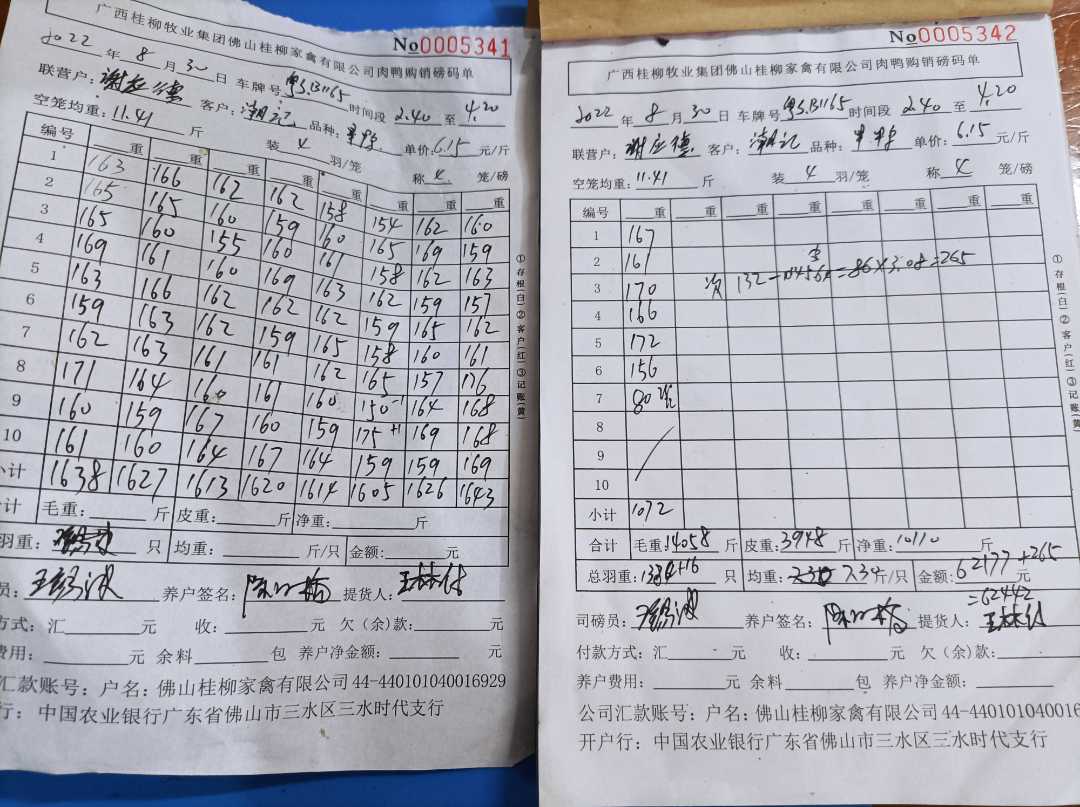 广西桂柳牧业集团佛山桂柳家禽有限公司肉鸭购销磅码单
No0005341
2022年8月30日 车牌号粤S.B1165 时间段2.40至4.20
联营户: 客户:潮记 品种: 单价:6.15元/斤
空笼均重:11.41斤 装4羽/笼 称4笼/磅
编号 重 重 重 重 重 重 重 重
1 163 166 162 162 158 154 162 160
2 165 165 160 159 160 165 169 159
3 165 160 155 160 161 158 162 163
4 169 161 160 169 163 162 159 157
5 163 166 162 162 162 159 165 162
6 159 163 162 159 165 158 160 161
7 162 163 161 161 162 165 157 176
8 171 164 160 161 160 150-1 164 168
9 160 159 167 160 159 175+1 169 168
10 161 160 164 167 164 159 159 169
小计 1638 1627 1613 1620 1614 1605 1626 1643
合计 毛重: 斤 皮重: 斤 净重: 斤
羽重: 只 均重: 斤/只 金额: 元
员: 养户签名: 提货人:
方式:汇 元 收: 元 欠(余)款: 元
费用: 元 余料 包 养户净金额: 元
汇款账号:户名:佛山桂柳家禽有限公司44-440101040016929
行:中国农业银行广东省佛山市三水区三水时代支行
①存根(白)②客户(红)③记账(黄)
No0005342
广西桂柳牧业集团佛山桂柳家禽有限公司肉鸭购销磅码单
2022年8月30日 车牌号粤S.B1165 时间段2.40至4.20
联营户: 客户:潮记 品种: 单价:6.15元/斤
空笼均重:11.41斤 装4羽/笼 称4笼/磅
编号 重 重 重 重 重 重 重 重
1 167
2 161
3 170 次 132 =86×3.08=265
4 166
5 172
6 156
7 80
8
9
10
小计 1072
合计 毛重:14058斤 皮重:3948斤 净重:10110斤
总羽重: +16只 均重: 7.34斤/只 金额:62177+265元
=62442
司磅员: 养户签名: 提货人:
付款方式:汇 元 收: 元 欠(余)款:
养户费用: 元 余料 包 养户净金额:
公司汇款账号:户名:佛山桂柳家禽有限公司44-440101040016
开户行:中国农业银行广东省佛山市三水区三水时代支行
①存根(白)②客户(红)③记账(黄)